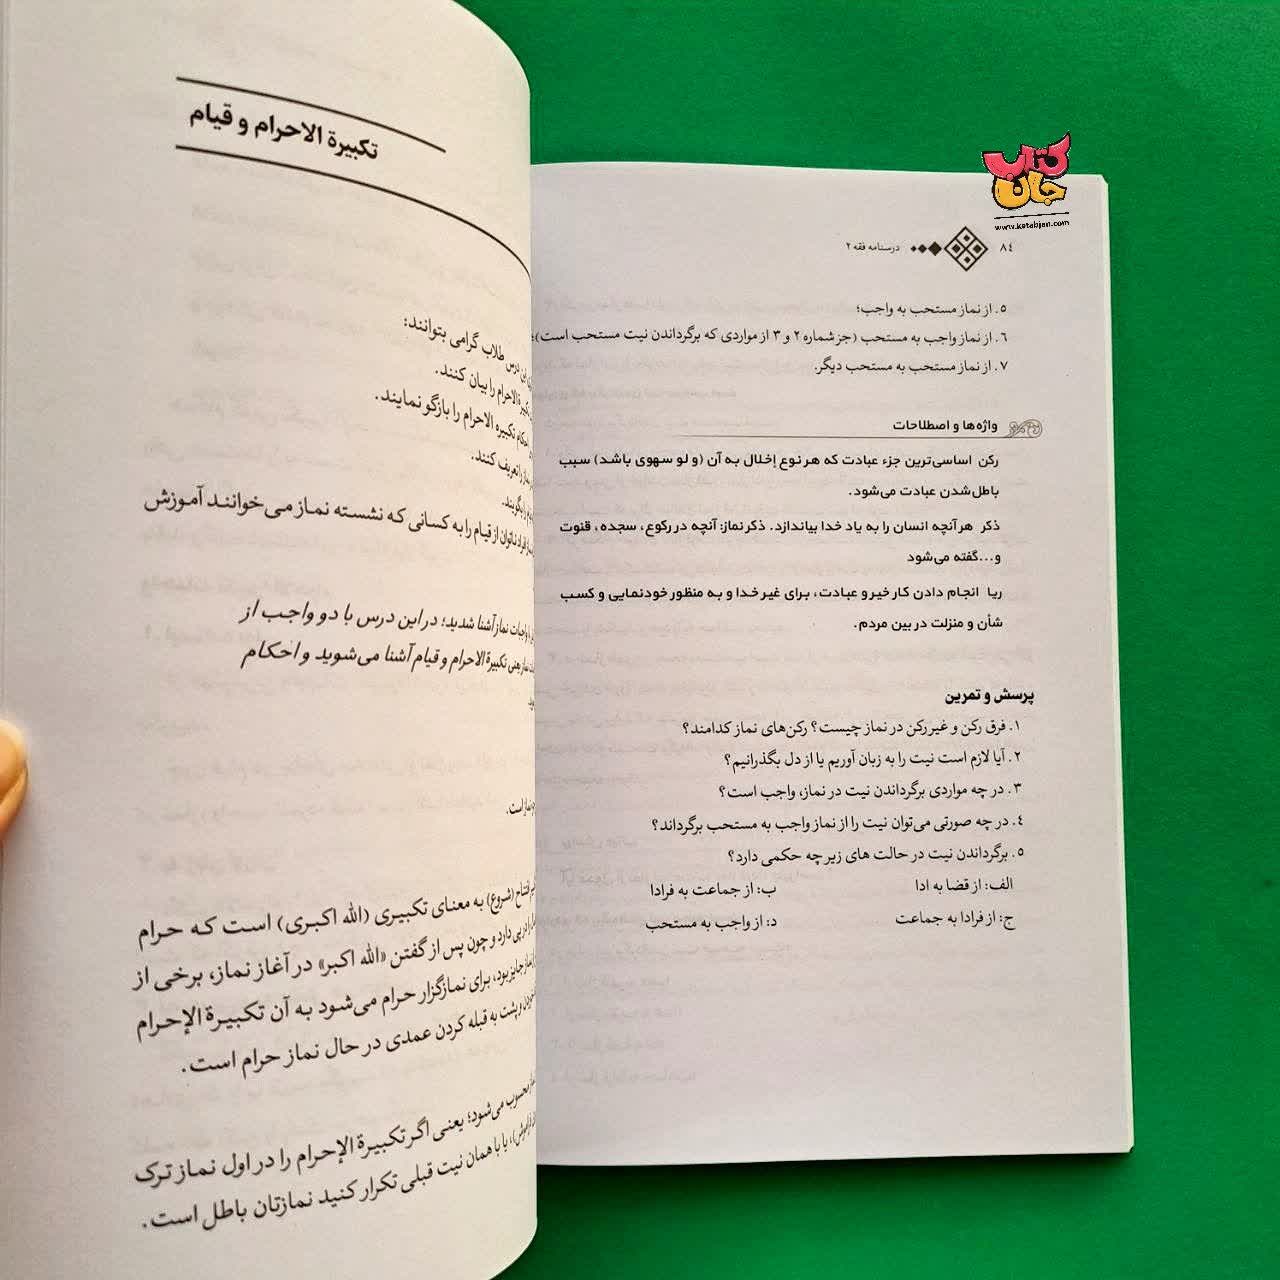 کتاب جان
www.ketabjan.com
۸۴ درسنامه فقه ۲
۵. از نماز مستحب به واجب؛
۶. از نماز واجب به مستحب (جز شماره ۲ و ۳ از مواردی که برگرداندن نیت مستحب است)؛
۷. از نماز مستحب به مستحب دیگر.
واژه‌ها و اصطلاحات
رکن اساسی‌ترین جزء عبادت که هر نوع إخلال به آن (و لو سهوی باشد) سبب
باطل شدن عبادت می‌شود.
ذکر هر آنچه انسان را به یاد خدا بیاندازد. ذکر نماز: آنچه در رکوع، سجده، قنوت
و...گفته می‌شود
ریا انجام دادن کار خیر و عبادت، برای غیر خدا و به منظور خودنمایی و کسب
شأن و منزلت در بین مردم.
پرسش و تمرین
۱. فرق رکن و غیر رکن در نماز چیست؟ رکن‌های نماز کدامند؟
۲. آیا لازم است نیت را به زبان آوریم یا از دل بگذرانیم؟
۳. در چه مواردی برگرداندن نیت در نماز، واجب است؟
۴. در چه صورتی می‌توان نیت را از نماز واجب به مستحب برگرداند؟
۵. برگرداندن نیت در حالت های زیر چه حکمی دارد؟
الف: از قضا به ادا ب: از جماعت به فرادا
ج: از فرادا به جماعت د: از واجب به مستحب
تکبیرة الاحرام و قیام
این درس طلاب گرامی بتوانند:
تکبیرة الاحرام را بیان کنند.
احکام تکبیره الاحرام را بازگو نمایند.
را تعریف کنند.
را بگویند.
افراد ناتوان از قیام را به کسانی که نشسته نماز می‌خوانند آموزش
واجبات نماز آشنا شدید؛ در این درس با دو واجب از
نماز یعنی تکبیرة الاحرام و قیام آشنا می‌شوید و احکام
نماز است.
افتتاح (شروع) به معنای تکبیری (الله اکبری) است که حرام
را در پی دارد و چون پس از گفتن «الله اکبر» در آغاز نماز، برخی از
جایز بود، برای نمازگزار حرام می‌شود به آن تکبیرة الإحرام
و پشت به قبله کردن عمدی در حال نماز حرام است.
محسوب می‌شود؛ یعنی اگر تکبیرة الإحرام را در اول نماز ترک
یا با همان نیت قبلی تکرار کنید نمازتان باطل است.